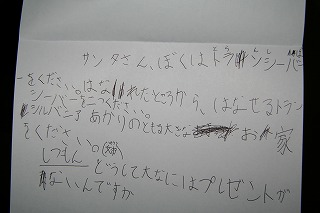 サンタさん、ぼくはトランシーバー
をください。はなれたところから、はなせるトラン
シーバーを二つください。
シルバニア あかりのともる大きなお家
をください。
しつもん どうして大なにはプレゼントが
ないんですか